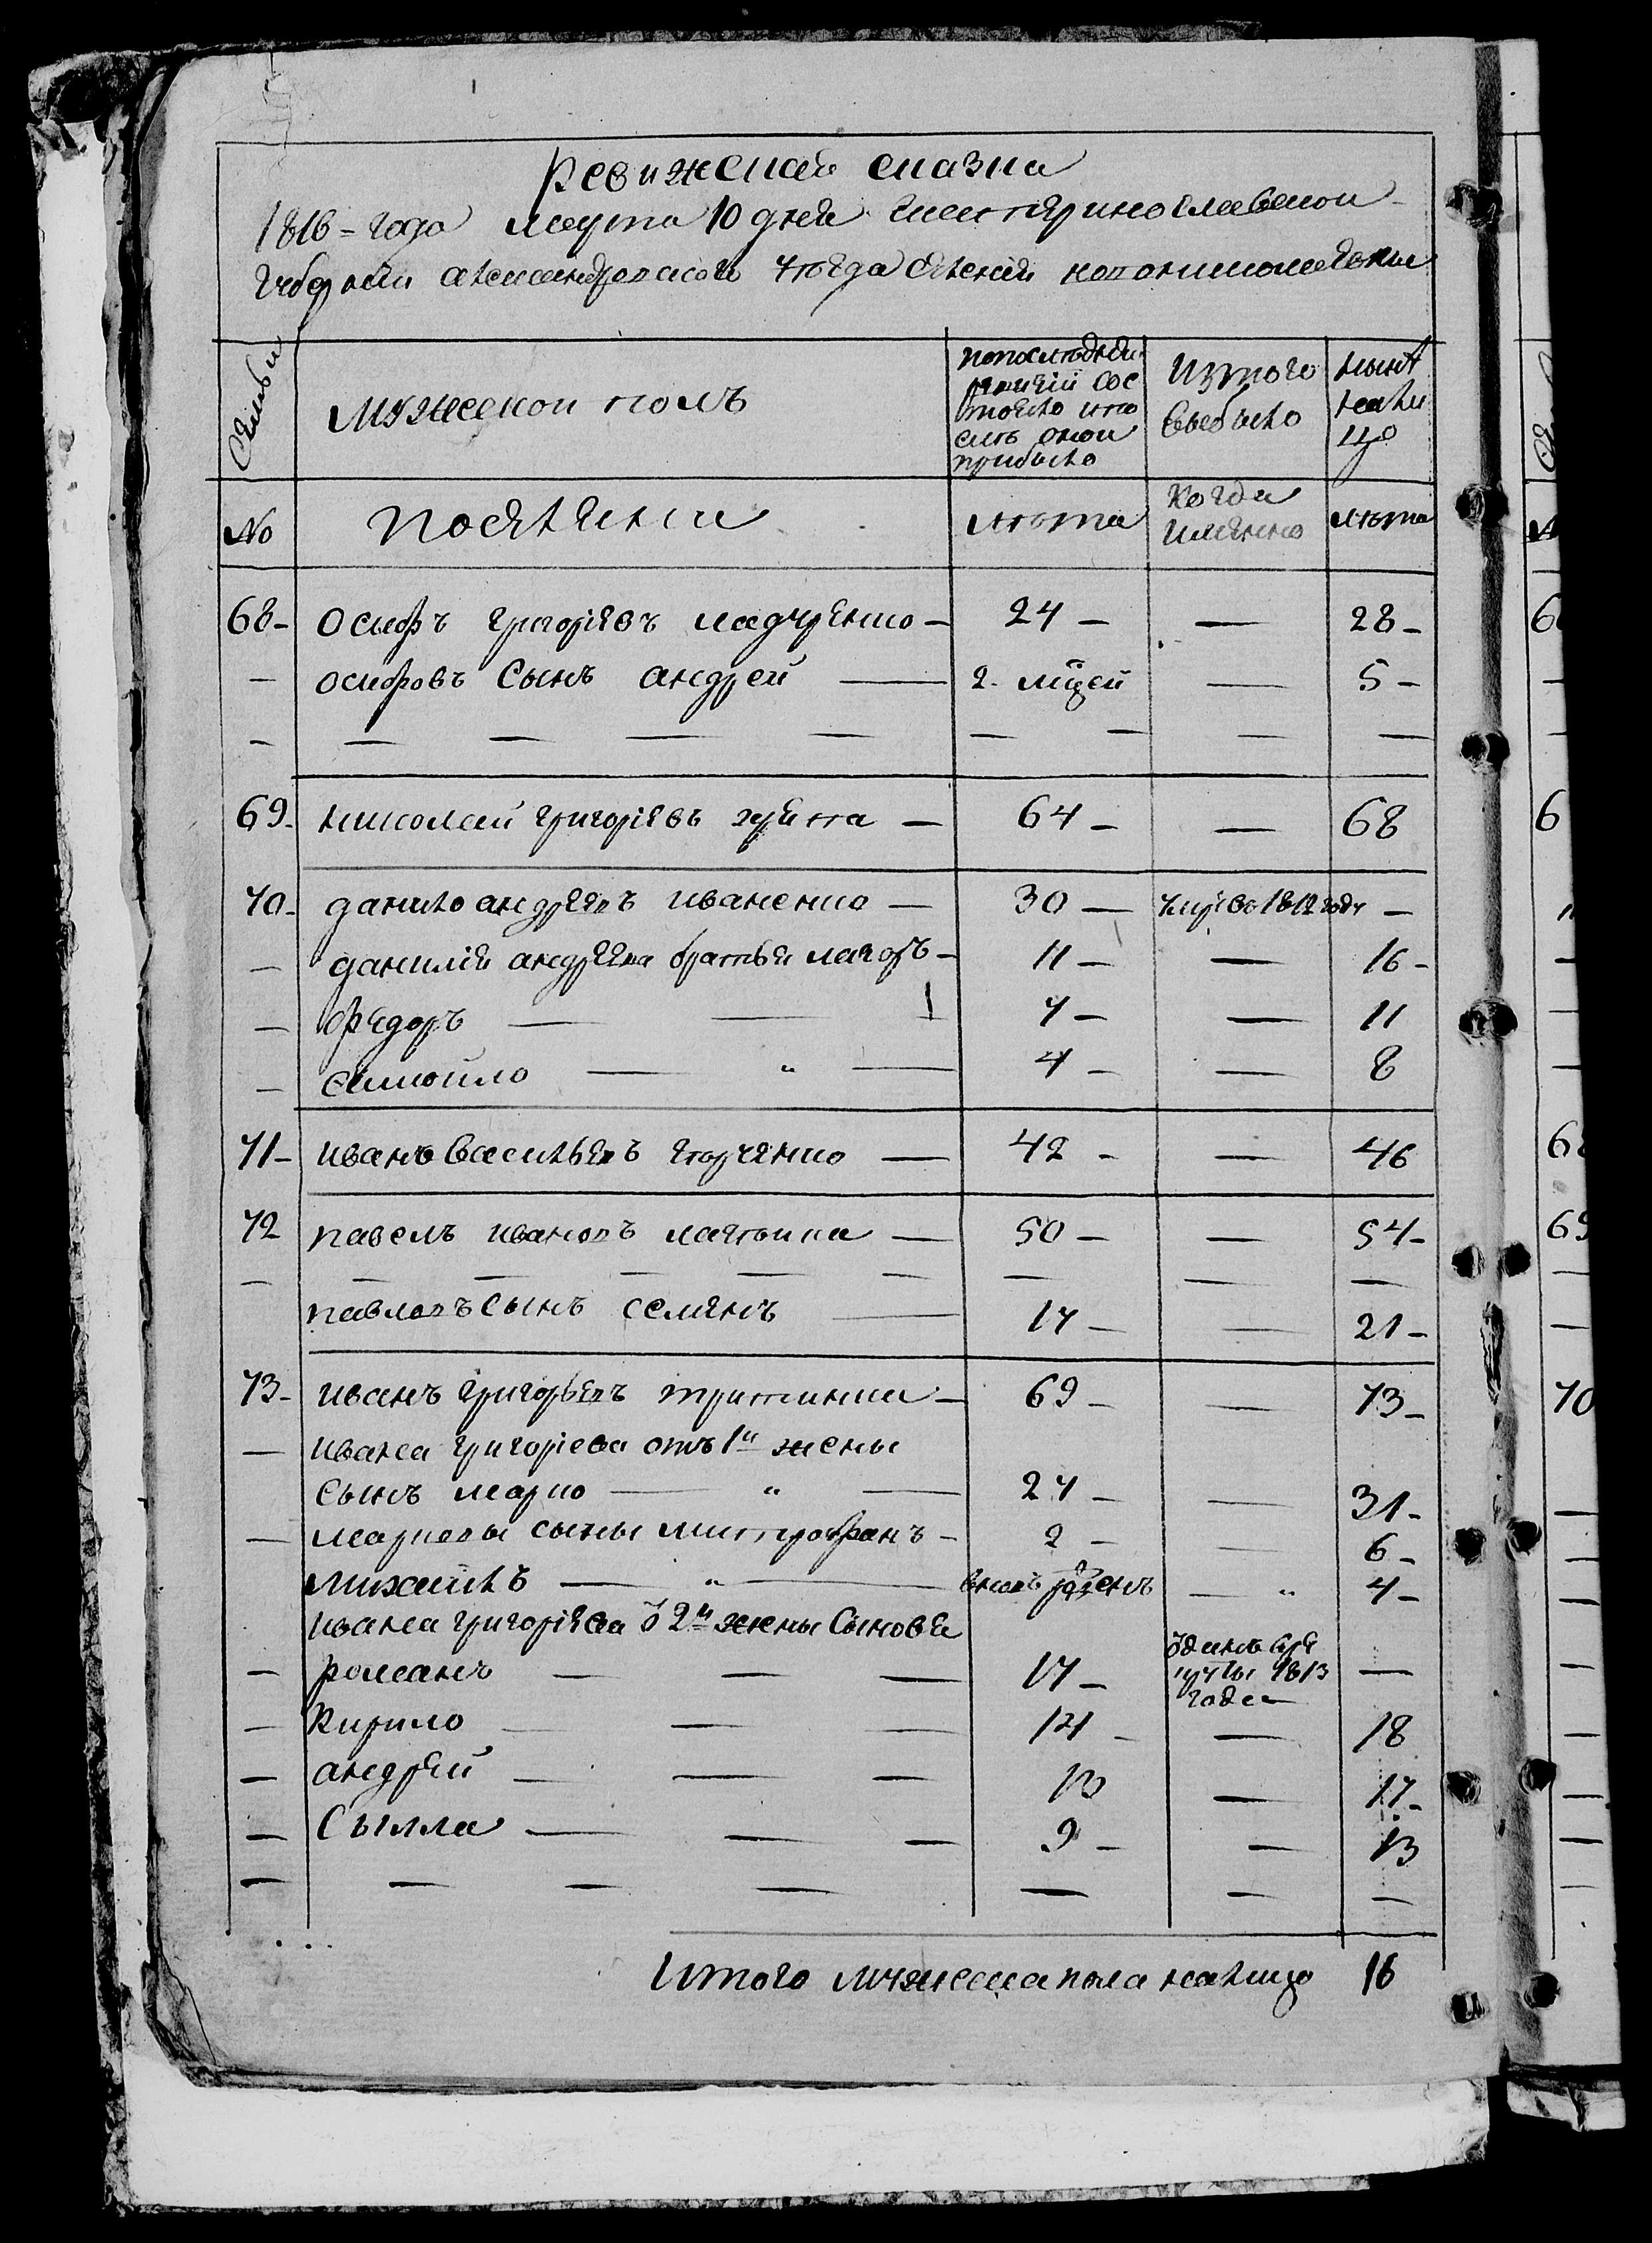 Ревижская сказка
1816 = года марта 10 дня Екатеринославской
губернии Александровского уезда селения
Семьи
мужескои полъ
попоследней
ревизии сос
тояло ипо
слѣ оной
прибыло
Изтого
выбыло
нынѣ
нали
цо
No
поселяне
лѣта
когда
имянно
лѣта
68- осифъ григоріевъ мадчренко — 24 — — 28 -
— осифовъ сынъ андрей — 2. мцей — 5 -
69. николай григоріевъ — 64 — — 68
70- данило андреевъ иваненко — 30 — умре въ 1812 году —
— данилы андреева братья — 11 — — 16 -
— фредоръ — 7 — — 11
— самойло — " — 4 — — 8
71- иванъ васильевъ — 42 - — 46
72 павелъ ивановъ — 50 — — 54-
павловъ сынъ семенъ — 17 — — 21 -
73- иванъ григорьевъ — 69 - — 73 -
— ивана григориева отъ 1й жены
сынъ марко — " — 27 — — 31 -
— марковы сыны митрофанъ - 2 - — 6 -
михайлъ — " — вновь рожденъ — " 4 -
ивана григоріева о 2й жены сыновя
— романъ — — — 17 — 1813 года —
— кирило — — — 14 - — 18
— андрей — — — 13 — 17 -
— Сылла — — — 9 - — 13
Итого мужеска пола налицо 16